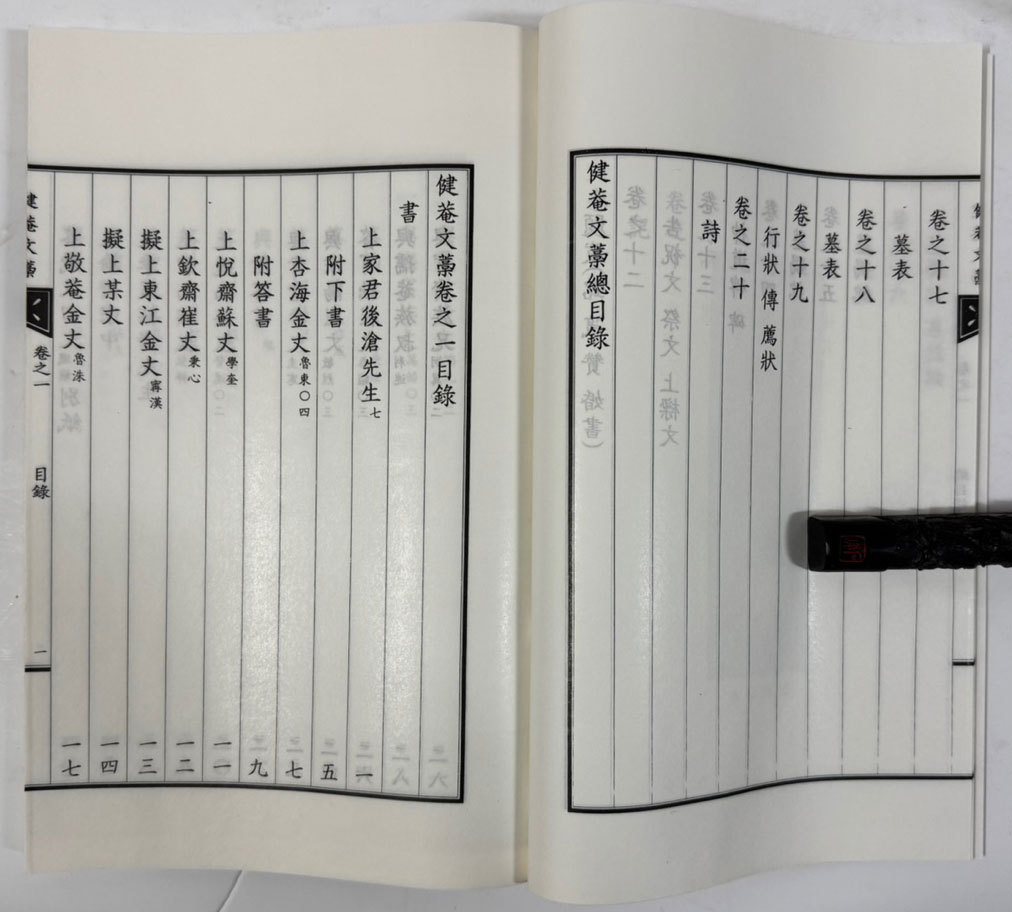 卷之十七
墓表
卷之十八
墓表
卷之十九
行狀 傳 薦狀
卷之二十
詩
健菴文藁總目錄
健菴文藁卷之一目錄
書
上家君後滄先生七 一
附下書 五
上杏海金丈魯東○四 七
附答書 九
上悅齋蘇丈學奎 一一
上欽齋崔丈秉心 一二
擬上東江金丈甯漢 一三
擬上某丈 一四
上敬菴金丈魯洙 一七
健菴文藁 卷之一 目錄 一